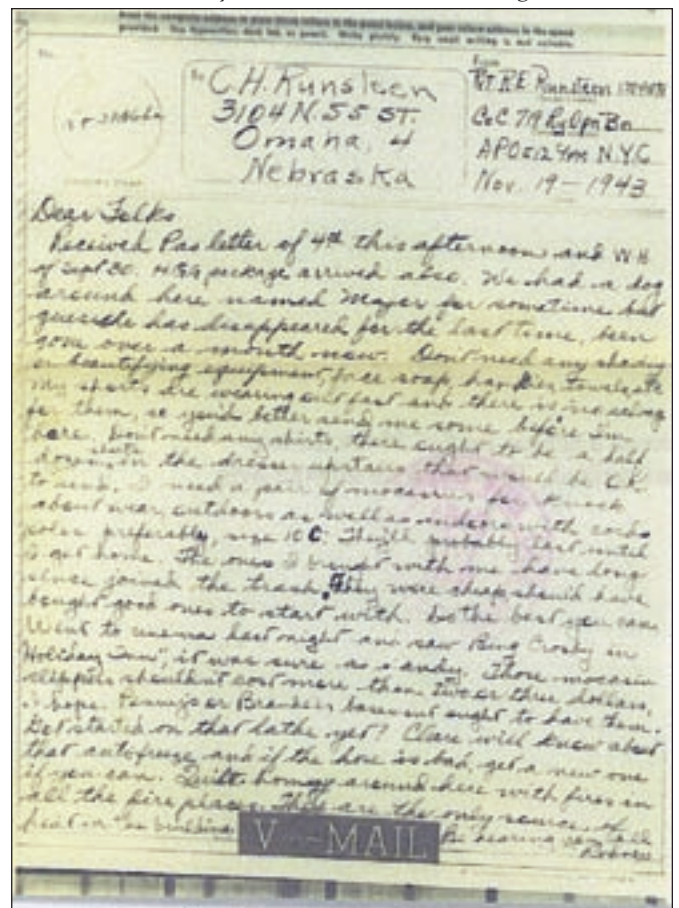 Print the complete address in plain block letters in the panel below, and your return address in the space
provided. Use typewriter, dark ink, or pencil. Write plainly. Very small writing is not suitable.
No.
To
From
C.H. Runsteen
3104 N. 55 ST.
Omaha, 4
Nebraska
Pvt. R.E. Runsteen
Co C 719 Ry Opn Bn
APO 512 N.Y.C
Nov. 19 - 1943
Dear Folks
Received Pas letter of 4th this afternoon and WH
of Sept 30. package arrived also. We had a dog
around here named Major for sometime but
guess he has disappeared for the last time, been
gone over a month now. Dont need any shaving
or beautifying equipment, face soap, towels etc
My shorts are wearing out fast and there is no
for them, so you'd better send me some before I'm
bare. Dont need any shirts, there ought to be a half
dozen shorts in the dresser upstairs that would be O.K.
to send. I need a pair of mocassins for knock
about wear, outdoors as well as indoors with
soles preferably, size 10 C. They'll probably last until
I get home. The ones I brought with me have long
since joined the trash, they were cheap should have
bought good ones to start with. Do the best you can.
Went to cinema last night and saw Bing Crosby in
Holiday Inn", it was sure a dandy. Those mocasin
slippers shouldnt cost more than two or three dollars,
I hope. Penny's or Brandeis basement ought to have them.
Get started on that lathe yet? Clare will know about
that antifreeze and if the hose is bad, get a new one
if you can. Quite homey around here with fires in
all the fire places. They are the only source of
heat in the building
Be hearing
V···—MAIL